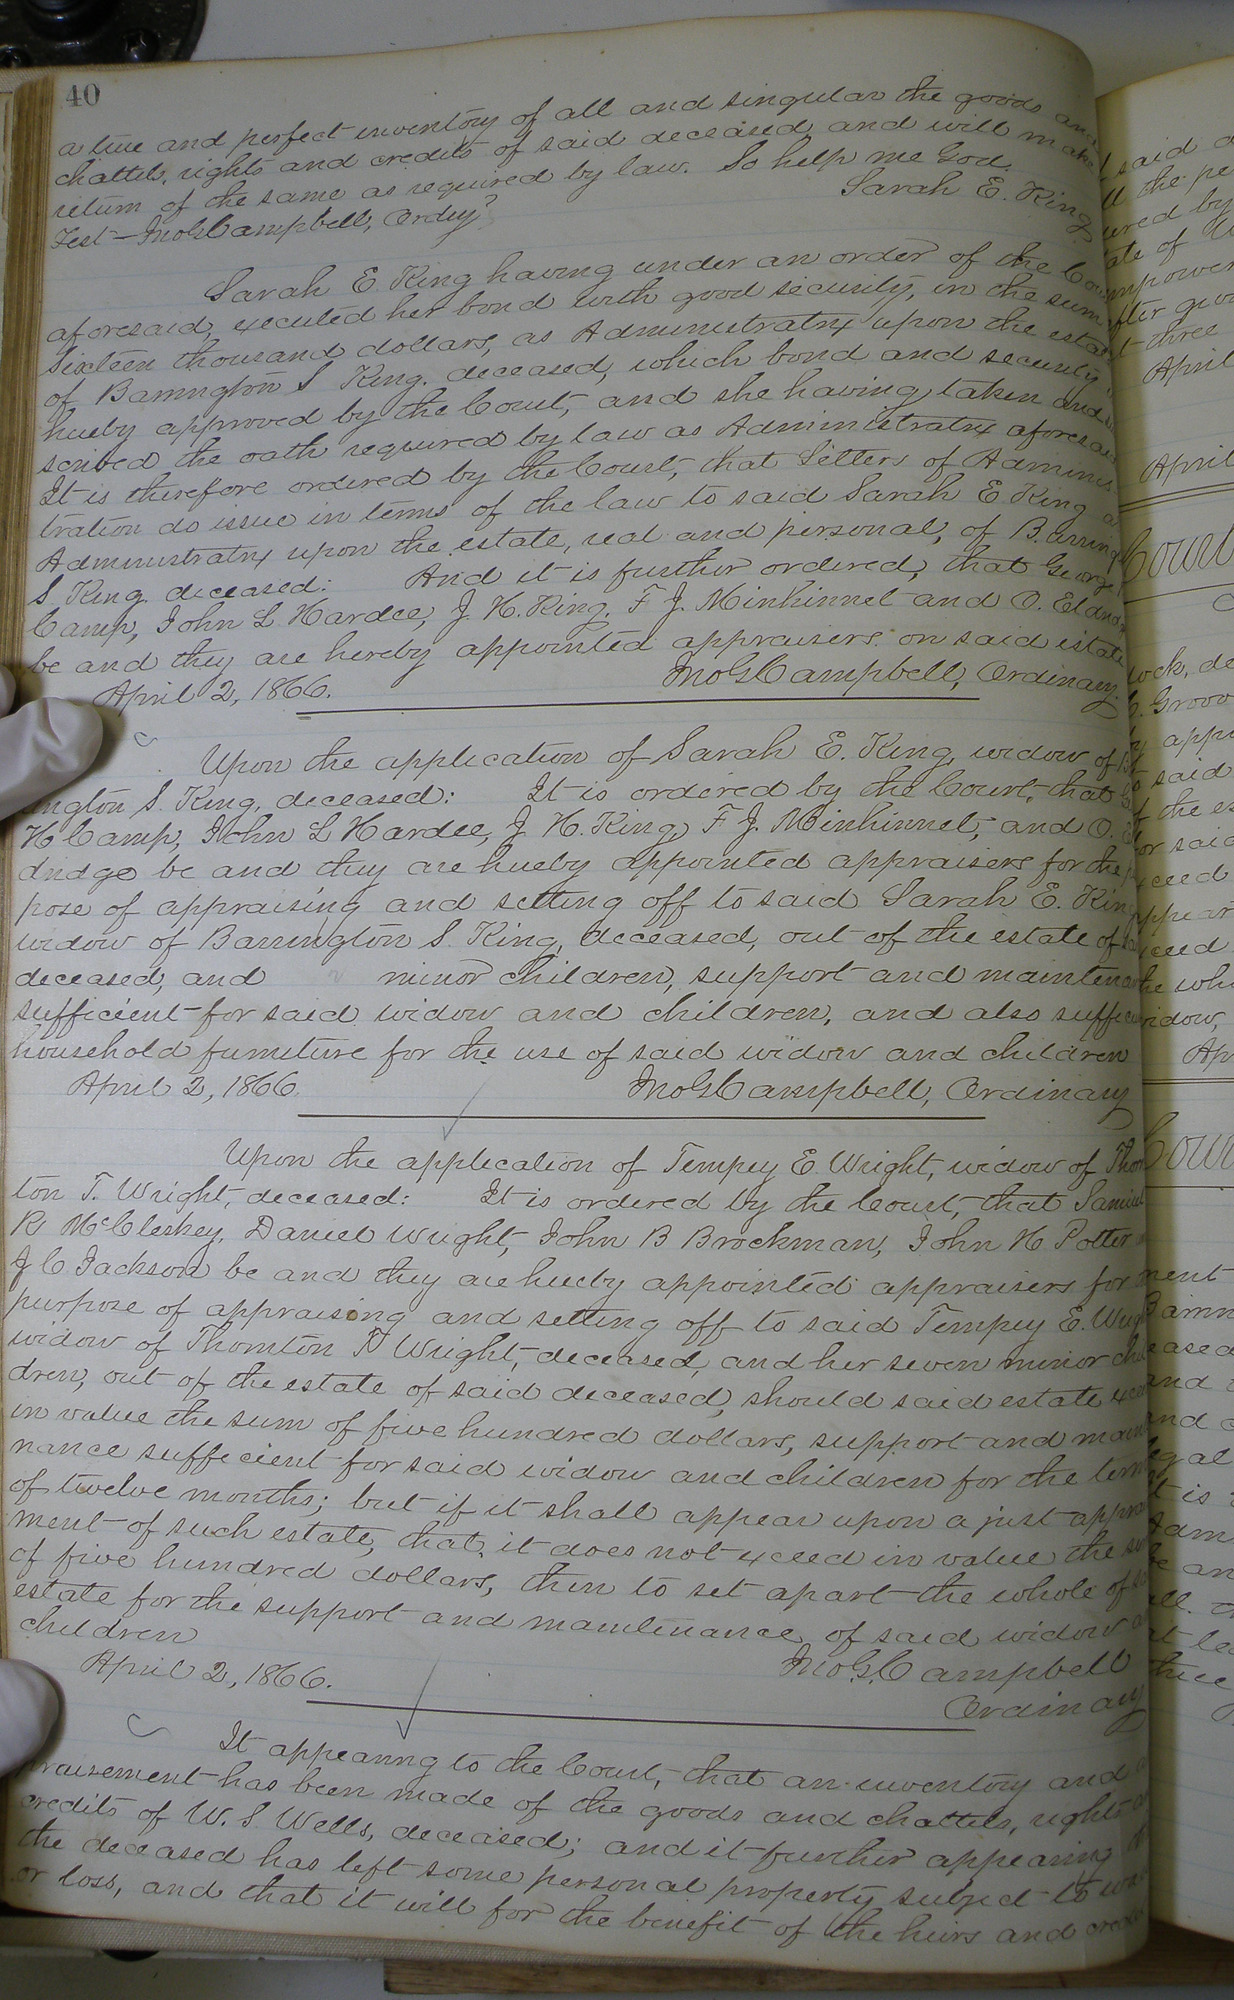 40
a true and perfect inventory of all and singular the goods and
chattels, rights and credits of said deceased and will make
return of the same as required by law. So help me God.
Sarah E. King
Test — Jno G Campbell, Ordry
Sarah E King having under an order of the Court
aforesaid, executed her bond with good security, in the sum
Sixteen thousand dollars, as Administratrix upon the estate
of Barrington S King. deceased, which bond and security
hereby approved by the Court, and she having taken and
scribed the oath required by law as Administratrix aforesaid
It is therefore ordered by the Court, that Letters of Adminis-
tration do issue in terms of the law to said Sarah E King as
Administratrix upon the estate, real and personal, of Barring
S King. deceased: And it is further ordered, that George
Camp, John L Hardee, J. H. King, F J. Minhinnet and O. Eldridge
be and they are hereby appointed appraisers on said estate
April 2, 1866. Jno G Campbell, Ordinary.
Upon the application of Sarah E. King, widow of B
ington S. King, deceased: It is ordered by the Court, that
H Camp, John L Hardee, J. H. King, F J. Minhinnet, and O. E
dridge be and they are hereby appointed appraisers for the
pose of appraising and setting off to said Sarah E. King
widow of Barrington S. King, deceased, out of the estate of
deceased, and minor children, support and mainten
sufficient for said widow and children, and also suffici
household furniture for the use of said widow and children
April 2, 1866. Jno G Campbell, Ordinary
Upon the application of Tempey E. Wright, widow of Thorn
ton T. Wright, deceased: It is ordered by the Court, that Samuel
R McCleskey, Daniel Wright, John B Brockman, John H Potter
J C Jackson be and they are hereby appointed appraisers for
purpose of appraising and setting off to said Tempey E. Wright
widow of Thornton T Wright, deceased, and her seven minor chil
dren, out of the estate of said deceased, should said estate exceed
in value the sum of five hundred dollars, support and main
nance sufficient for said widow and children for the term
of twelve months; but if it shall appear upon a just apprai
ment of such estate, that it does not exceed in value the sum
of five hundred dollars, then to set apart the whole of
estate for the support and maintenance of said widow
children
April 2, 1866. Jno. G. Campbell
Ordinary
It appearing to the Court, that an inventory and
praisement has been made of the goods and chattels, rights
credits of W. S. Wells, deceased; and it further appearing
the deceased has left some personal property subject to
or loss, and that it will for the benefit of the heirs and